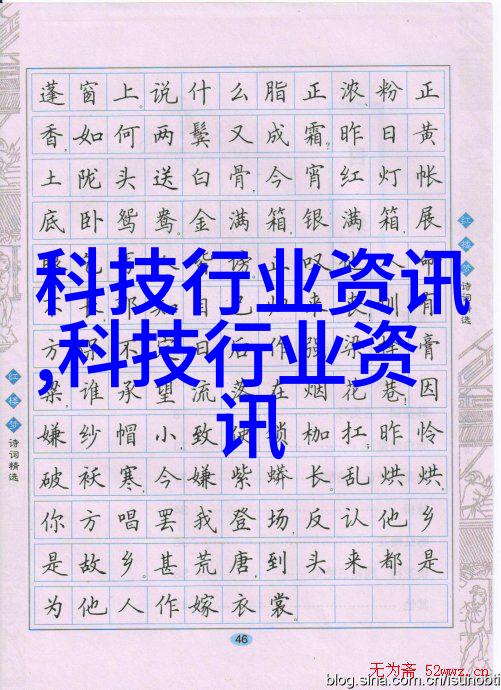 蓬窗上。说什么脂正浓、粉正
香,如何两鬓又成霜?昨日黄
土陇头送白骨,今宵红灯帐
底卧鸳鸯。金满箱,银满箱,展
人 谤。正叹 人命
自己 来 训有
方,保不 日后作强梁。 膏
粱,谁承望流落在烟花巷!因
嫌纱帽小,致使锁枷扛,昨怜
破袄寒,今嫌紫蟒长。乱烘烘,
你方唱罢我登场,反认他乡
是故乡。甚荒唐,到头来都是
为他人作嫁衣裳。
科技行业资讯
,科技行业资
讯
红楼梦诗词精选
红楼梦诗词精选
46
无为斋 52wwz.cn
blog.sina.com.cn/isunobti